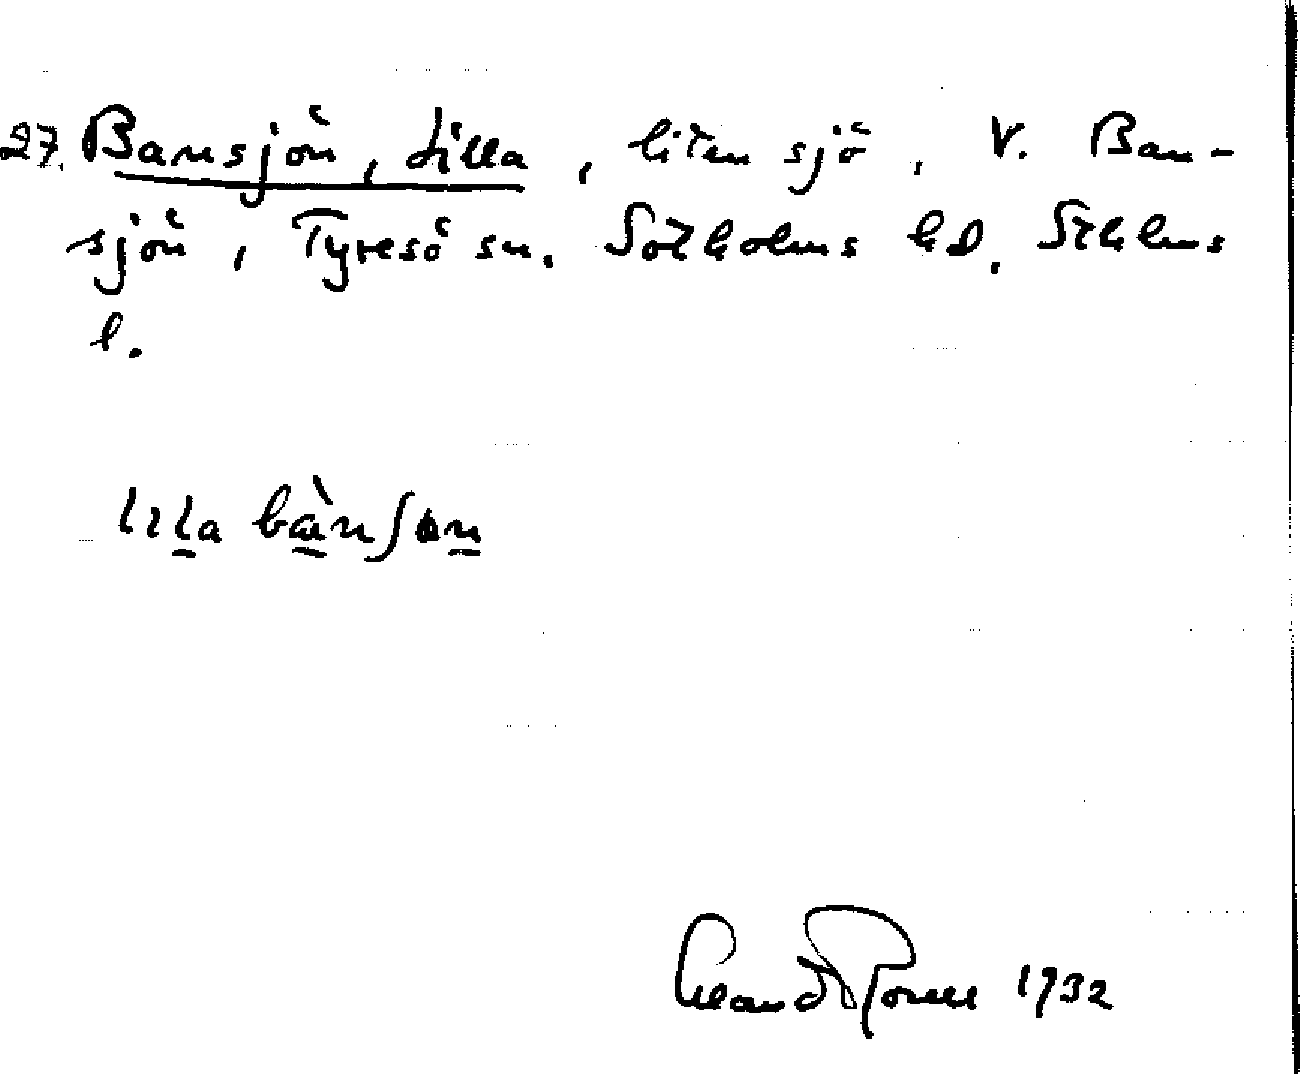 27. Bansjön, Lilla, liten sjö, V. Ban-
sjön, Tyresö sn. Sotholms hd. Sthlms
l.
lɩla bànʃɷn
1932